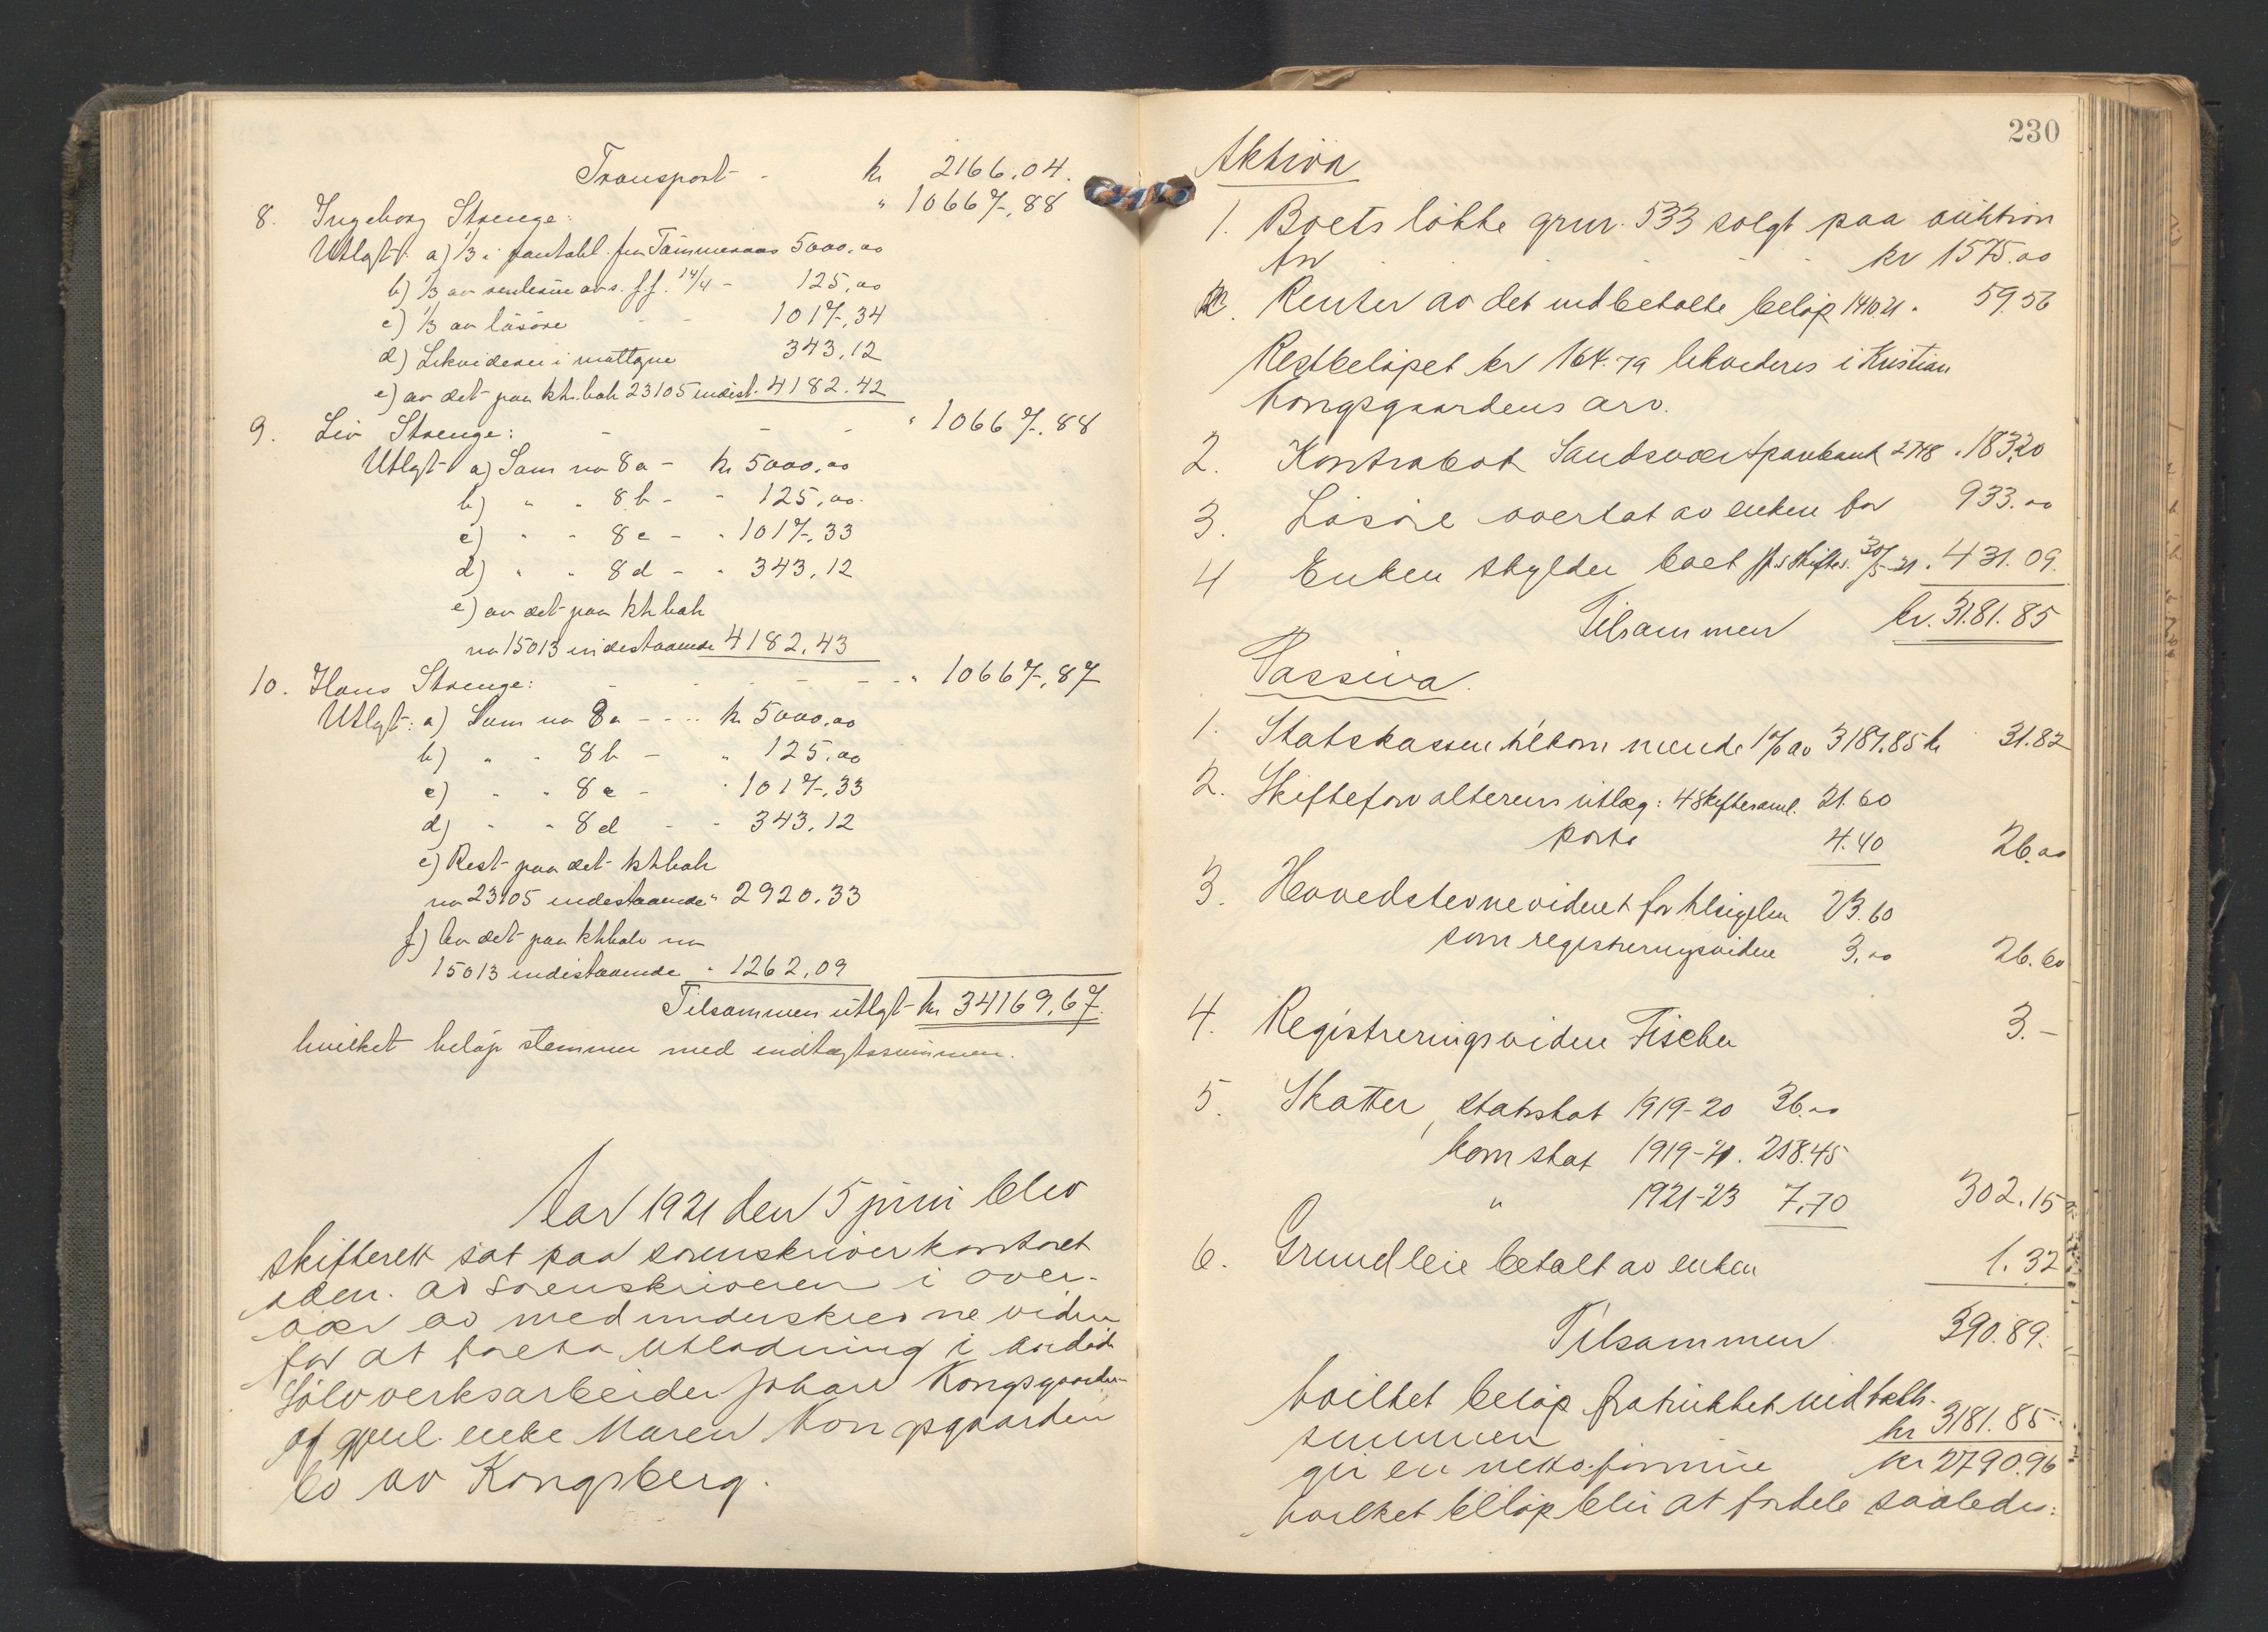 Transport - kr 2166,04.
8. Ingeborg Strenge: " 10667,88
Utlagt: a) 1/3 i pantobl. fra Tämmeraas 5000,00
b) 1/3 av f.f. 14/4 - 125,00
c) 1/3 av løsøre - - 1017,34
d) Likvideres i mottagne 343,12
e) av det paa ktr. bok 23105 indest. 4182.42
9. Liv Strenge: - - - " 10667.88
Utlagt a) Som no 8a - kr 5000,00
b) " " 8b - - 125,00.
c) " " 8c - " 1017,33
d) " " 8d - " 343,12
e) av det paa ktrbok
no 15013 indestaaende 4182,43
10. Hans Strenge: - - - - - " 10667,87
Utlagt: a) Som no 8a - - .. kr 5000,00
b) " " 8b - " 125,00
c) " " 8c - " 1017,33
d) " " 8d - - 343,12
e) Rest paa det ktrbok
no 23105 indestaaende " 2920.33
f) Av det paa ktrbok no
15013 indestaaende " 1262,09
Tilsammen utlagt kr 34169,67.
hvilket beløp stemmer med indtægtssummen.
Aar 1921 den 5 juni blev
skifterett sat paa sorenskriverkontoret
sden. av sorenskriveren i over-
vær av medunderskrevne vidner
for at foreta utlodning i avdøde
Sølvverksarbeider Johan Kongsgaarden
og gjenl. enke Maren Kongsgaarden
bo av Kongsberg.
230
Aktiva
1. Boets løkke grnr. 533 solgt paa auktion
for . . . . kr 1575.00
Renter av det indbetalte beløp 14/10 21 . 59.56
Restbeløpet kr 164.79 likvideres i Kristian
Kongsgaardens arv.
2. Kontrabok Sandsvær Sparebank 2748 . 183.20
3. Løsøre overtat av enken for 933.00
4 Enken skylder boet skiftes. 30/5-21 . 431.09.
Tilsammen kr. 3181.85
Passiva.
1. Statskassen tilkommende 1% av 3181.85 kr 31.82
2. Skifteforvalterens utlæg: 4 skiftesaml. 21.60
porto 4.40 26.00
3. Hovedstevnevidnet for tilsigelser 23.60
som registreringsvidne 3.00 26.60
4. Registreringsvidne Fischer 3.-
5. Skatter, statsskat 1919-20 36.00
kom skat 1919-21. 258.45
" 1921-23 7.70 302.15
6. Grundleie betalt av enken 1.32
Tilsammen 390.89.
hvilket beløp fratrukket indtægts-
summen kr 3181.85
gir en netto formue kr 2790.96
hvilket beløp blir at fordele saaledes: